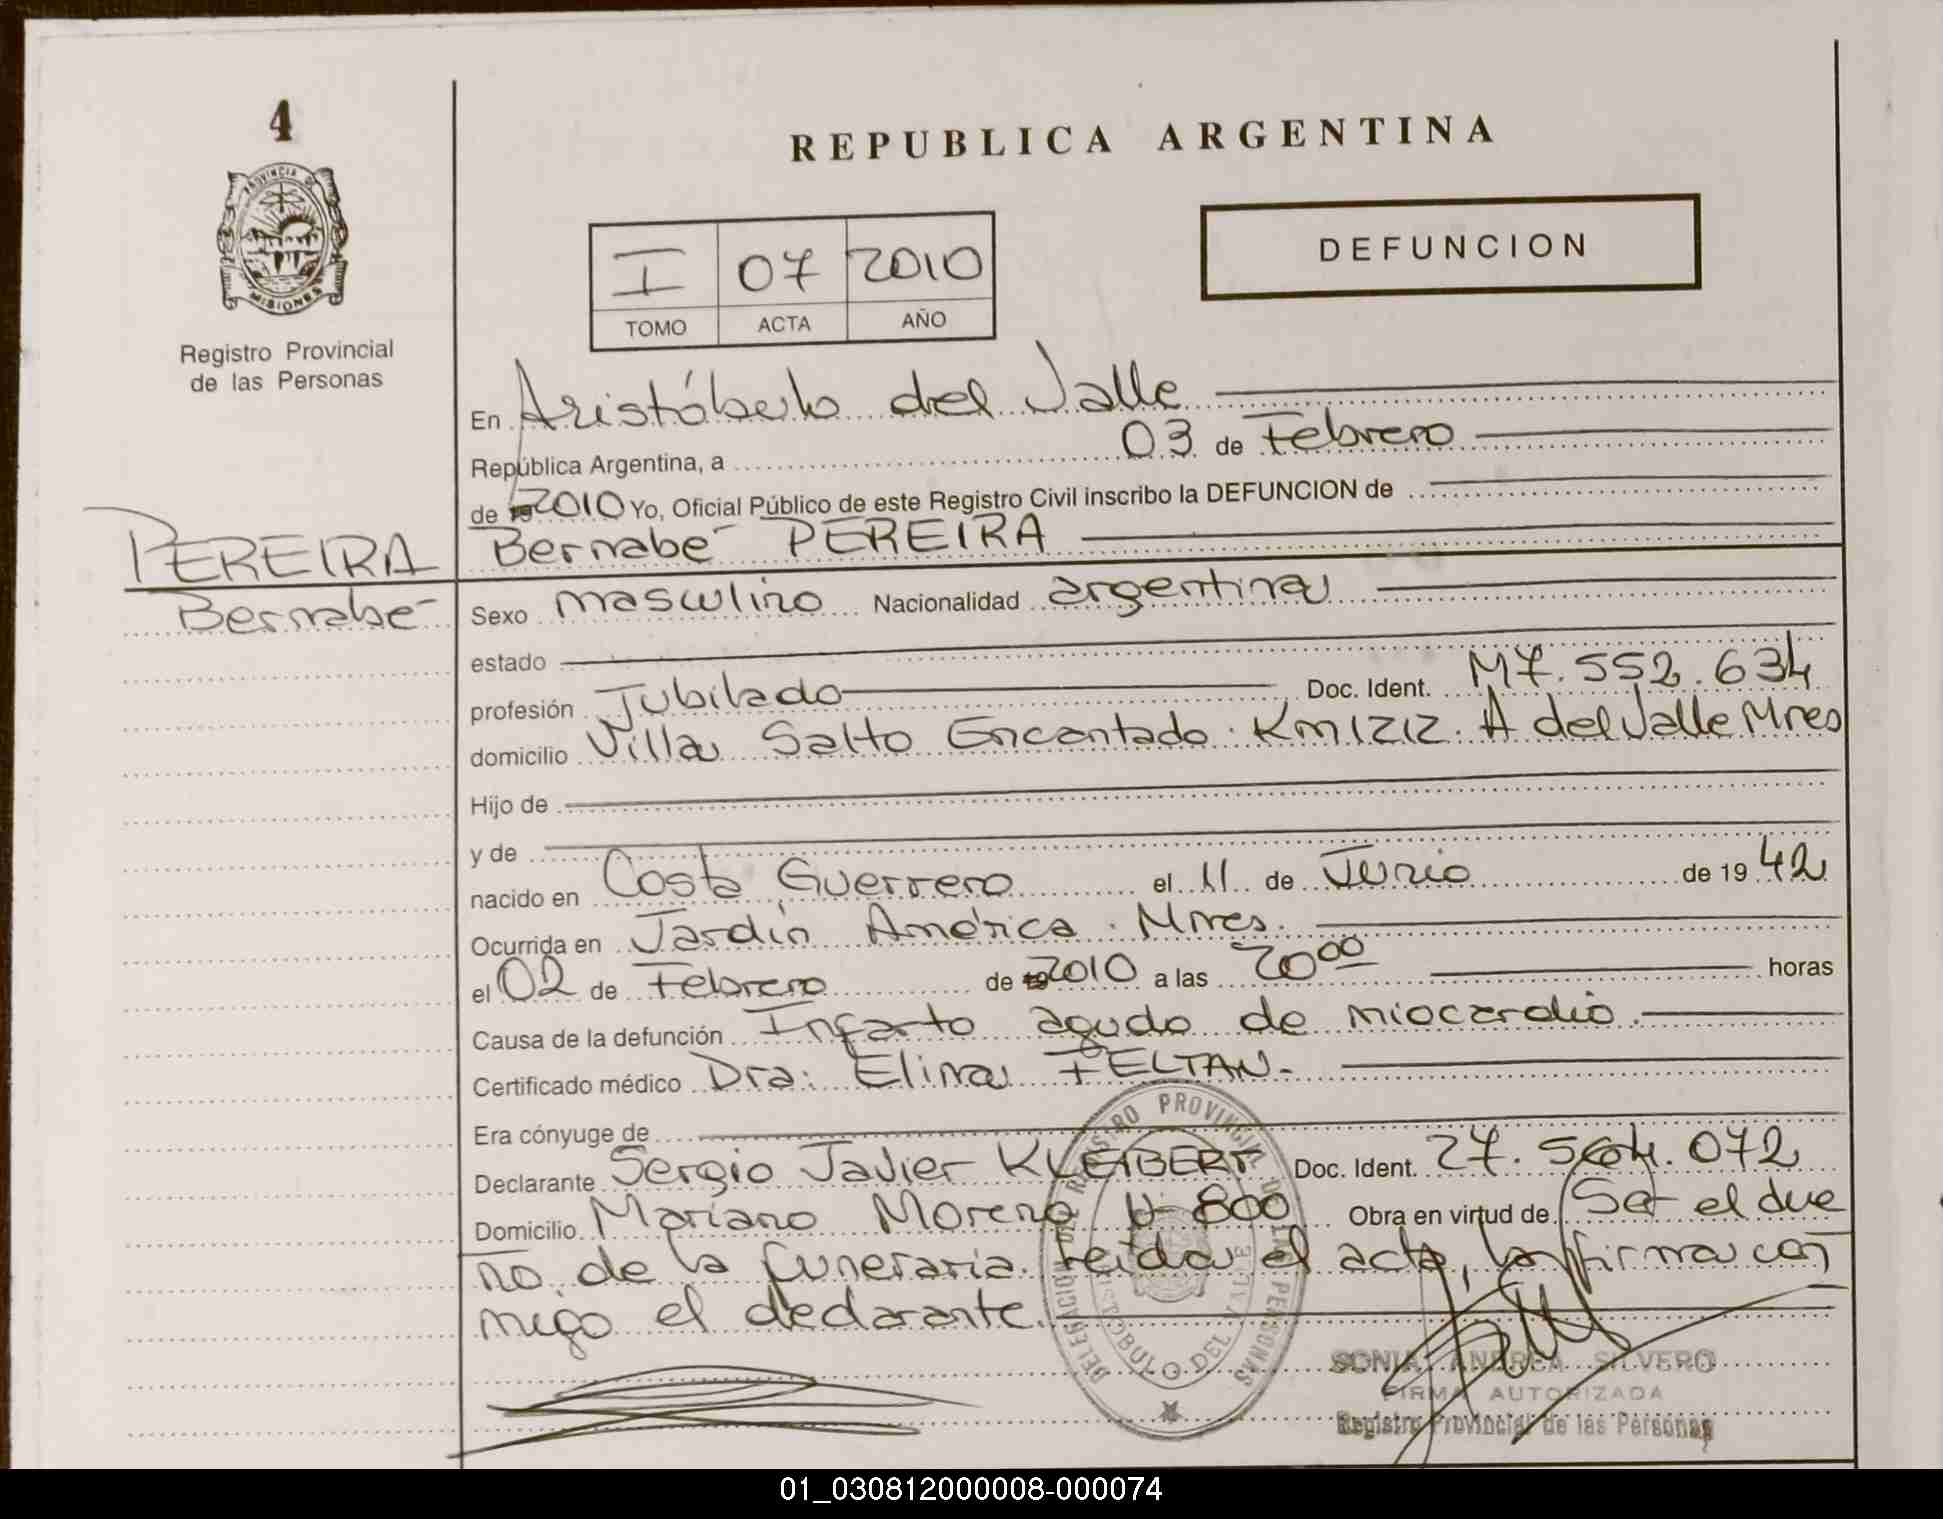 4
PROVINCIA DE
MISIONES
Registro Provincial
de las Personas
REPUBLICA ARGENTINA
I 07 2010
TOMO ACTA AÑO
DEFUNCION
En Aristóbulo del Valle
República Argentina, a 03 de Febrero
de 2010 Yo, Oficial Público de este Registro Civil inscribo la DEFUNCION de
PEREIRA Bernabé PEREIRA
Bernabé Sexo masculino Nacionalidad argentina
estado
profesión Jubilado Doc. Ident. M7.552.634
domicilio Villa Salto Encantado. Km 1212. A del Valle Mnes
Hijo de
y de
nacido en Costa Guerrero el 11 de Junio de 1942
Ocurrida en Jardín América. Mnes.
el 02 de Febrero de 2010 a las 20 00 horas
Causa de la defunción Infarto agudo de miocardio.
Certificado médico Dra: Elina FELTAN.
Era cónyuge de
Declarante Sergio Javier KLEIBERT Doc. Ident. 27. 072
Domicilio Mariano Moreno N 800 Obra en virtud de Ser el due
no de la funeraria. leida el acta, la firma con
migo el declarante.
DELEGACION DEL REGISTRO PROVINCIAL DE LAS PERSONAS
ARISTOBULO DEL VALLE
SONIA ANDREA SILVERO
FIRMA AUTORIZADA
Registro Provincial de las Personas
01_030812000008-000074